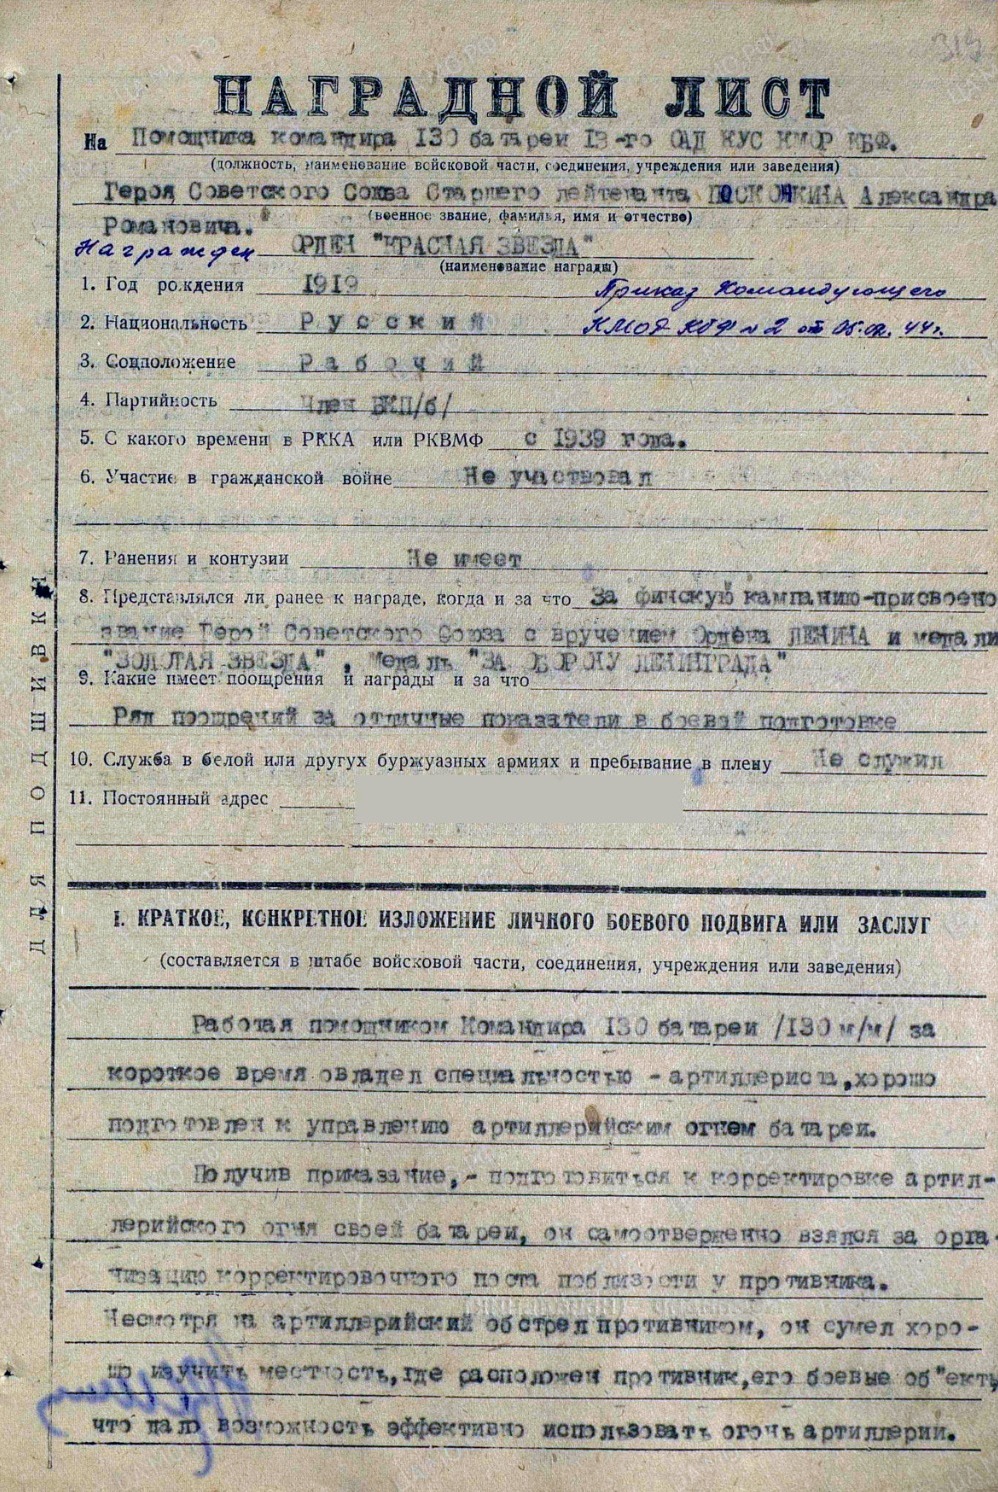 НАГРАДНОЙ ЛИСТ
На Помощника командира 130 батареи 13-го ОАД КУС КМОР КБФ.
(должность, наименование войсковой части, соединения, учреждения или заведения)
Героя Советского Союза Старшего лейтенанта ПОСКОНКИНА Александра
(военное звание, фамилья, имя и отчество)
Романовича.
Награжден ОРДЕН "КРАСНАЯ ЗВЕЗДА"
(наименование награды)
1. Год рождения 1919 Приказ Командующего
2. Национальность Русский КМОР КБФ № 2 от 05.02.44г.
3. Соцположение Рабочий
4. Партийность Член ВКП/б/
5. С какого времени в РККА или РКВМФ с 1939 года.
6. Участие в гражданской войне Не участвовал
7. Ранения и контузии Не имеет
8. Представлялся ли ранее к награде, когда и за что За финскую кампанию-присвоено
звание Герой Советского Союза с вручением Ордена ЛЕНИНА и медали
"ЗОЛОТАЯ ЗВЕЗДА", Медаль "ЗА ОБОРОНУ ЛЕНИНГРАДА"
9. Какие имеет поощрения и награды и за что
Ряд поощрений за отличные показатели в боевой подготовке
10. Служба в белой или других буржуазных армиях и пребывание в плену Не служил
11. Постоянный адрес
ДЛЯ ПОДШИВКИ
I. КРАТКОЕ, КОНКРЕТНОЕ ИЗЛОЖЕНИЕ ЛИЧНОГО БОЕВОГО ПОДВИГА ИЛИ ЗАСЛУГ
(составляется в штабе войсковой части, соединения, учреждения или заведения)
Работая помощником Командира 130 батареи /130 м/м/ за
короткое время овладел специальностью - артиллериста, хорошо
подготовлен к управлению артиллерийским огнем батареи.
Получив приказание, - подготовиться к корректировке артил-
лерийского огня своей батареи, он самоотверженно взялся за орга-
низацию корректировочного поста поблизости у противника.
Несмотря на артиллерийский обстрел противником, он сумел хоро-
шо изучить местность, где расположен противник, его боевые об"екты
что дало возможность эффективно использовать огонь артиллерии.